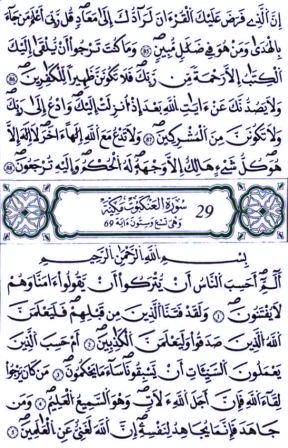 إِنَّ ٱلَّذِى فَرَضَ عَلَيْكَ ٱلْقُرْءَانَ لَرَآدُّكَ إِلَىٰ مَعَادٍ قُل رَّبِّى أَعْلَمُ مَن جَآءَ
بِٱلْهُدَىٰ وَمَنْ هُوَ فِى ضَلَٰلٍ مُّبِينٍ 85 وَمَا كُنتَ تَرْجُوٓا۟ أَن يُلْقَىٰٓ إِلَيْكَ
ٱلْكِتَٰبُ إِلَّا رَحْمَةً مِّن رَّبِّكَ فَلَا تَكُونَنَّ ظَهِيرًا لِّلْكَٰفِرِينَ 86
وَلَا يَصُدُّنَّكَ عَنْ ءَايَٰتِ ٱللَّهِ بَعْدَ إِذْ أُنزِلَتْ إِلَيْكَ وَٱدْعُ إِلَىٰ رَبِّكَ
وَلَا تَكُونَنَّ مِنَ ٱلْمُشْرِكِينَ 87 وَلَا تَدْعُ مَعَ ٱللَّهِ إِلَٰهًا ءَاخَرَ لَآ إِلَٰهَ إِلَّا
هُوَ كُلُّ شَىْءٍ هَالِكٌ إِلَّا وَجْهَهُۥ لَهُ ٱلْحُكْمُ وَإِلَيْهِ تُرْجَعُونَ 88
29 سُورَةُ ٱلْعَنكَبُوتِ مَكِّيَّة
وَهِيَ تِسْعٌ وَسِتُّونَ ءَايَة 69
بِسْمِ ٱللَّهِ ٱلرَّحْمَٰنِ ٱلرَّحِيمِ
أَلَٓمِّٓ أَحَسِبَ ٱلنَّاسُ أَن يُتْرَكُوٓا۟ أَن يَقُولُوٓا۟ ءَامَنَّا وَهُمْ
لَا يُفْتَنُونَ 1 وَلَقَدْ فَتَنَّا ٱلَّذِينَ مِن قَبْلِهِمْ فَلَيَعْلَمَنَّ
ٱللَّهُ ٱلَّذِينَ صَدَقُوا۟ وَلَيَعْلَمَنَّ ٱلْكَٰذِبِينَ 2 أَمْ حَسِبَ ٱلَّذِينَ
يَعْمَلُونَ ٱلسَّيِّـَٔاتِ أَن يَسْبِقُونَا سَآءَ مَا يَحْكُمُونَ 3 مَن كَانَ يَرْجُوا۟
لِقَآءَ ٱللَّهِ فَإِنَّ أَجَلَ ٱللَّهِ لَأٓتٍ وَهُوَ ٱلسَّمِيعُ ٱلْعَلِيمُ 4 وَمَن
جَٰهَدَ فَإِنَّمَا يُجَٰهِدُ لِنَفْسِهِۦٓ إِنَّ ٱللَّهَ لَغَنِىٌّ عَنِ ٱلْعَٰلَمِينَ 5